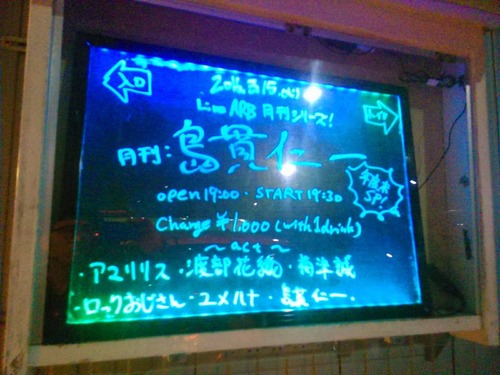 入口
2016.3.15.(火)
Live ARB 月刊シリーズ!
トイレ
月刊:島貫仁一
SP!
open 19:00 · START 19:30
Charge ¥1,000 (with 1drink)
~ act ~
・アマリリス・渡部花織・梅津誠
・ロックおじさん・ユメハナ・島貫仁一・